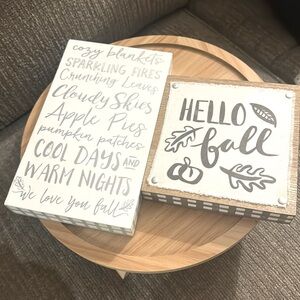 cozy blankets
SPARKLING FIRES
Crunching Leaves
Cloudy Skies
Apple Pies
pumpkin patches
COOL DAYS AND
WARM NIGHTS
we love you fall
HELLO
fall